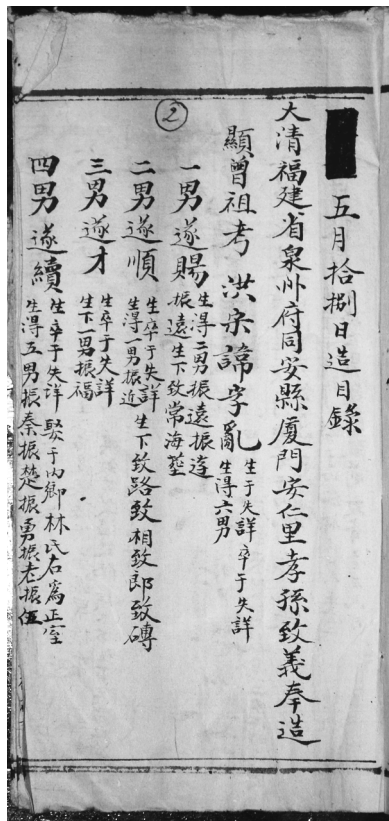 五月拾捌日造目錄
大清福建省泉州府同安縣廈門安仁里孝孫致義奉造
②
顯曾祖考 洪宗諱字亂 生于失詳卒于失詳
生得六男
一男遂賜 生得二男振遠振達
振遠生下致常海蓥
二男遂順 生卒于失詳
生得一男振近 生下致路致相致郎致磚
三男遂才 生卒于失詳
生下一男振福
四男遂續 生卒于失詳 娶于內鄉林氏名為正室
生得五男振秦振楚振勇振老振伍